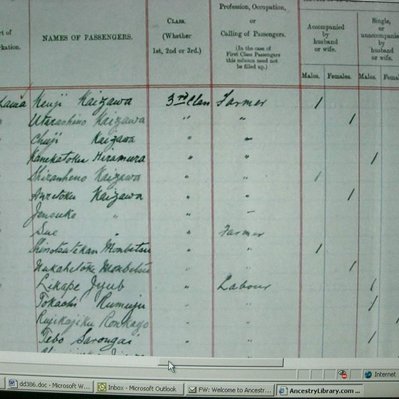 rt of
rkation.
NAMES OF PASSENGERS.
CLASS.
(Whether
1st, 2nd or 3rd.)
Profession, Occupation,
or
Calling of Passengers.
(In the case of
First Class Passengers
this column need not
be filled up.)
Accompanied
by
husband
or wife.
Single,
or
unaccompanied
by
husband
or wife.
Males. Females. Males. Fem
Kenji Kaizawa 3rd Class Farmer 1
Utarashino Kaizawa " " 1
Chuji Kaizawa " "
Kanekatoku Hiramura " " 1
Shiranheno Kaizawa " " 1
Kaizawa " " 1
" "
Sue " " Farmer
Shirotsutekan Monbetsu " " 1
Monbetsu " " 1
Likape Jyub " Labour 1
Tokachi Rumuju " " 1
Ronkago "
Tebo Sarongai " " 1
dd386.doc - Microsoft W...
Inbox - Microsoft Outlook
FW: Welcome to Ancest...
AncestryLibrary.com ...
Internet